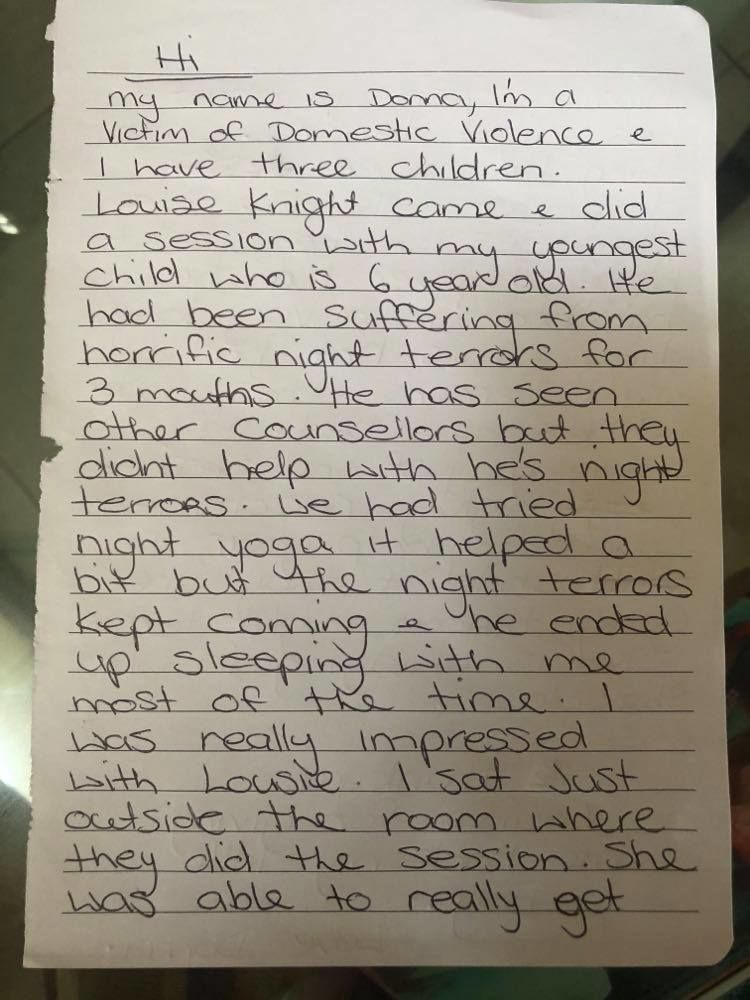 Hi
my name is Donna, I'm a
Victim of Domestic Violence e
I have three children.
Louise Knight came e did
a session with my youngest
child who is 6 year old. He
had been suffering from
horrific night terrors for
3 months. He has seen
other counsellors but they
didnt help with he's night
terrors. We had tried
night yoga it helped a
bit but the night terrors
kept coming e he ended
up sleeping with me
most of the time. I
was really impressed
with Lousie. I sat just
outside the room where
they did the session. She
was able to really get